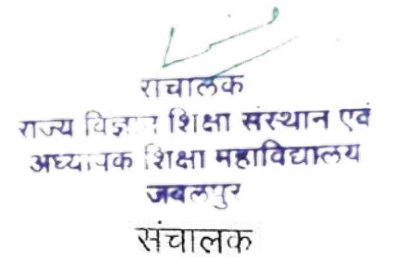 संचालक
राज्य विज्ञान शिक्षा संस्थान एवं
अध्यापक शिक्षा महाविद्यालय
जबलपुर
संचालक